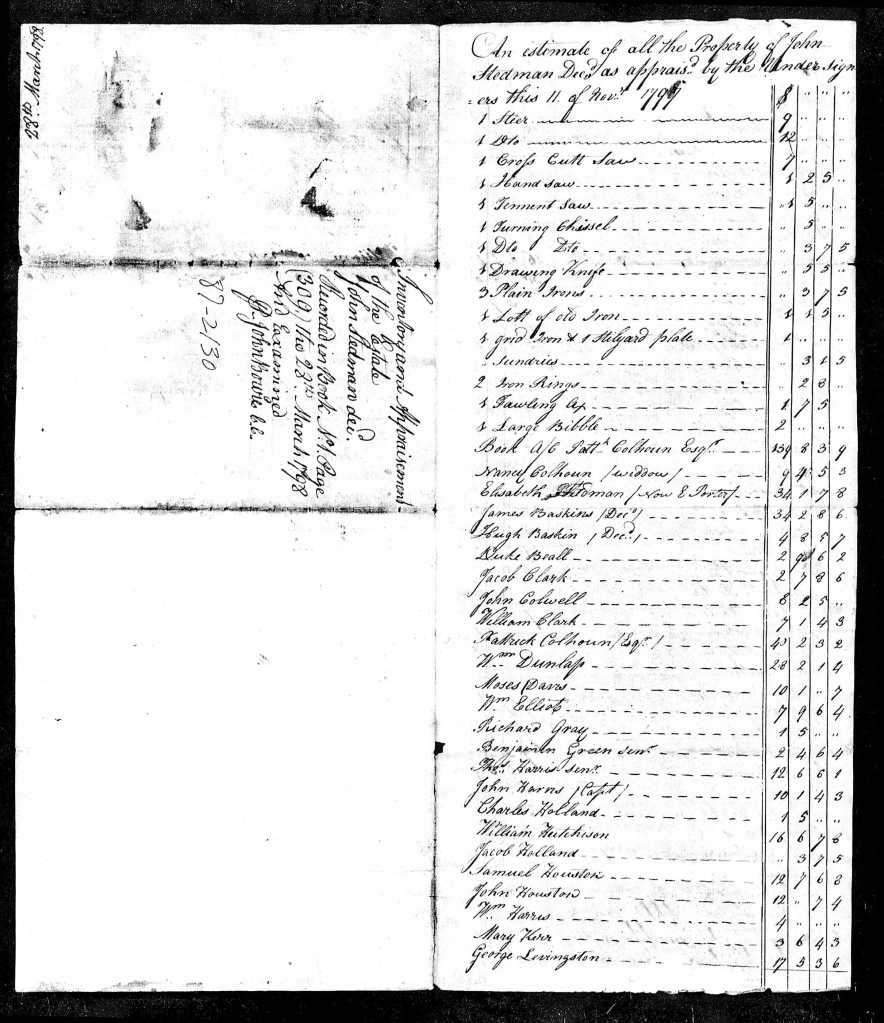 23d. March 1798
Inventory and Appraisement
of the Estate
John Stedman decd.
Recorded in Book No. 1. Page
(309) the 23rd March 1798
And Examined
Pr. John Bowie C.C.
87-2130
An estimate of all the Property of John
Stedman Decd as apprais'd by the Undersign
=ers this 11 of Novr. 1797
1 Stier 9 " " "
1 Dto 12 " " "
1 Cross Cutt Saw 7 " " "
1 Hand saw 1 2 5 "
1 Tennent Saw "1 5 " "
1 Turning Chissel " 5 " "
1 Dto Dto " 3 7 5
1 Drawing Knife " 5 5 "
3 Plain Irons " 3 7 5
1 Lott of old Iron 1 1 5 "
1 grid Iron & 1 Stilyard plate 1 " " "
" Sundries " 3 1 5
2 Iron Rings " 2 8 "
1 Fawling Ax 1 7 5
1 Large Bibble 2 " " "
Book A/C Patk. Colhoun Esqr. 139 8 3 9
Nancy Colhoun /widdow/ 9 4 5 3
Elisabeth Stedman /Now E Porter/ 34 1 7 8
James Baskins /Decd/ 34 2 8 6
Hugh Baskin /Decd/ 4 8 5 7
Duke Beall 2 9 6 2
Jacob Clark 2 7 8 6
John Colwell 8 2 5 "
William Clark 7 1 4 3
Pattrick Colhoun /Esqr./ 43 2 3 2
Wm Dunlap 28 2 1 4
Moses Davis 10 1 " 7
Wm. Elliot 7 9 6 4
Richard Gray 1 5 " "
Benjamin Green senr. 2 4 6 4
Thos. Harris senr. 12 6 6 1
John Harris /Capt/ 10 1 4 3
Charles Holland 1 5 " "
William Hutchison 16 6 7 8
Jacob Holland " 3 7 5
Samuel Houston 12 7 6 8
John Houston 12 " 7 4
Wm. Harris 4 " " "
Mary Kerr 3 6 4 3
George Levingston 17 5 3 6